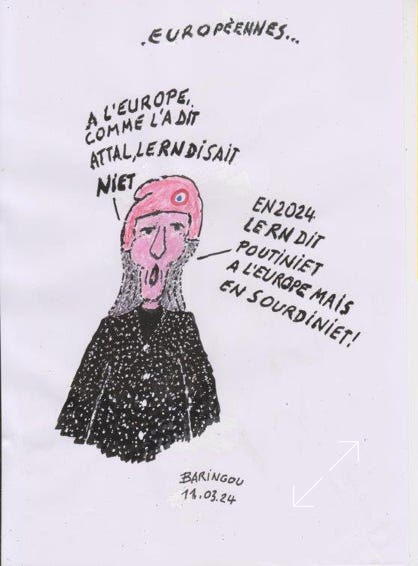 .EUROPÈENNES...
A L'EUROPE,
COMME L'A DIT
ATTAL, LE RN DISAIT
NIET
EN 2024
LE RN DIT
POUTINIET
A L'EUROPE MAIS
EN SOURDINIET!
BARINGOU
11.03.24